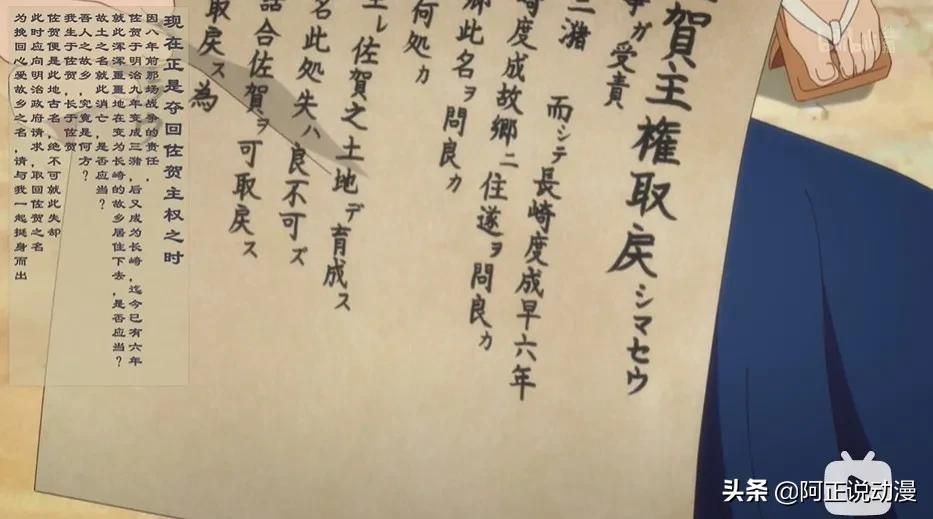 賀主権取戻シマセウ
事ガ受責
潴 而シテ長崎度成早六年
崎度成故郷ニ住遂ヲ問良カ
郷此名ヲ問良カ
何処カ
生レ佐賀之土地デ育成ス
名此処失ハ良不可ズ
話合佐賀ヲ可取戻ス
取戻ス為
现在正是夺回佐贺主权之时
因八年前那场战争的责任
佐贺于明治九年变成三潴，后又成为长崎，迄今已有六年
就此浑浑噩噩地在变为长崎的故乡居住下去，是否应当？
故土之名就此消亡，是否应当？
吾人之故乡，究竟是何方？
我生于佐贺，长于佐贺
佐贺便是此地古名，绝不可就此失却
此时应向明治政府请求，取回佐贺之名
为挽回心爱故乡之名，请与我一起挺身而出
bilibili
头条 @阿正说动漫